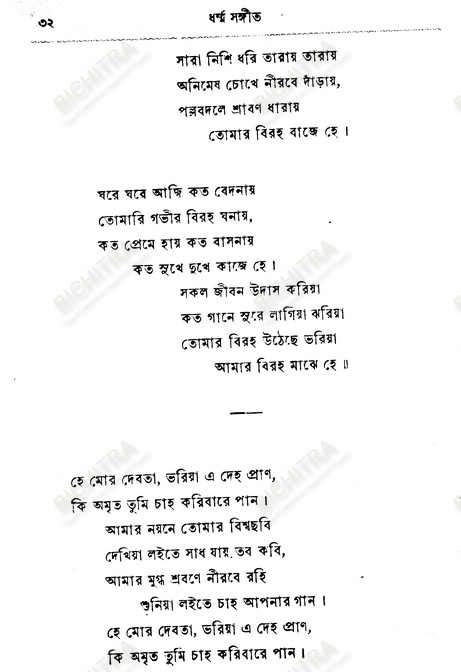 ৩২
ধর্ম্ম সঙ্গীত
সারা নিশি ধরি তারায় তারায়
অনিমেষ চোখে নীরবে দাঁড়ায়,
পল্লবদলে শ্রাবণ ধারায়
তোমার বিরহ বাজে হে ।
ঘরে ঘরে আজি কত বেদনায়
তোমারি গভীর বিরহ ঘনায়,
কত প্রেমে হায় কত বাসনায়
কত সুখে দুখে কাজে হে ।
সকল জীবন উদাস করিয়া
কত গানে সুরে লাগিয়া ঝরিয়া
তোমার বিরহ উঠেছে ভরিয়া
আমার বিরহ মাঝে হে ॥
হে মোর দেবতা, ভরিয়া এ দেহ প্রাণ,
কি অমৃত তুমি চাহ করিবারে পান ।
আমার নয়নে তোমার বিশ্বছবি
দেখিয়া লইতে সাধ যায় তব কবি,
আমার মুগ্ধ শ্রবণে নীরবে রহি
শুনিয়া লইতে চাহ আপনার গান ।
হে মোর দেবতা, ভরিয়া এ দেহ প্রাণ,
কি অমৃত তুমি চাহ করিবারে পান ।
BICHITRA
BICHITRA
BICHITRA
BICHITRA
BICHITRA
BICHITRA